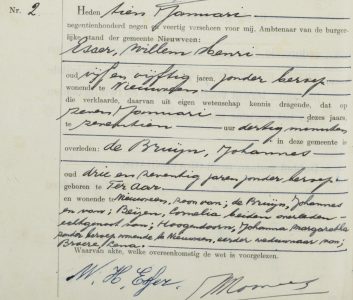 Nr. 2
Heden tien Januari
negentienhonderd negen en veertig verscheen voor mij, Ambtenaar van de burger-
lijke stand der gemeente Nieuwveen:
Esser, Willem Henri
oud vijf en vijftig jaren, zonder beroep
wonende te Nieuwveen
die verklaarde, daarvan uit eigen wetenschap kennis dragende, dat op
zeven Januari dezes jaars,
te zeventien uur dertig minuten
in deze gemeente is
overleden: de Bruijn, Johannes
oud drie en zeventig jaren, zonder beroep
geboren te Ter Aar
en wonende te Nieuwveen, zoon van; de Bruijn, Johannes
en van; Beijen, Cornelia beiden overleden
echtgenoot van; Hoogendoorn, Johanna Margaretha
zonder beroep wonende te Nieuwveen, eerder weduwnaar van;
Broere, Lena.
Waarvan akte, welke overeenkomstig de wet is voorgelezen.
W. H. Esser